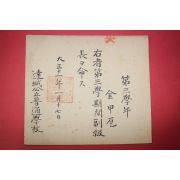 第三學年
金甲㐓
右者第三學期間副級
長ヲ命ス
大正十一年一月十七日
達城公立普通學校